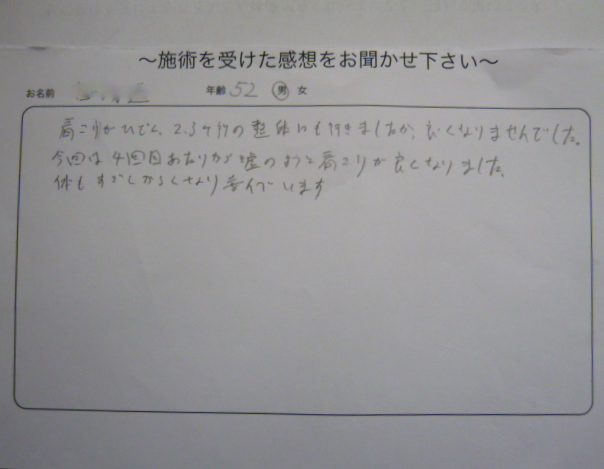 〜施術を受けた感想をお聞かせ下さい〜
お名前 年齢 52 男 女
肩こりがひどく、2.3ヶ所の整体にも行きましたが、良くなりませんでした。
今回は4回目あたりから嘘のように肩こりが良くなりました。
体もすごくかるくなり喜んでいます